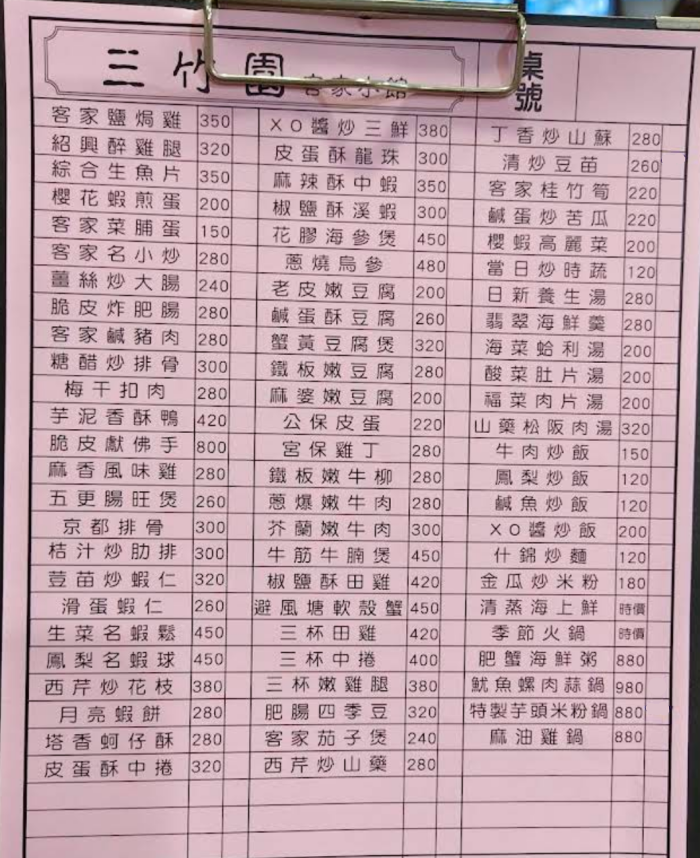 三竹園 客家小館 桌號
客家鹽焗雞 350
紹興醉雞腿 320
綜合生魚片 350
櫻花蝦煎蛋 200
客家菜脯蛋 150
客家名小炒 280
薑絲炒大腸 240
脆皮炸肥腸 280
客家鹹豬肉 280
糖醋炒排骨 300
梅干扣肉 280
芋泥香酥鴨 420
脆皮獻佛手 800
麻香風味雞 280
五更腸旺煲 260
京都排骨 300
桔汁炒肋排 300
荳苗炒蝦仁 320
滑蛋蝦仁 260
生菜名蝦鬆 450
鳳梨名蝦球 450
西芹炒花枝 380
月亮蝦餅 280
塔香蚵仔酥 280
皮蛋酥中捲 320
XO醬炒三鮮 380
皮蛋酥龍珠 300
麻辣酥中蝦 350
椒鹽酥溪蝦 300
花膠海參煲 450
蔥燒烏參 480
老皮嫩豆腐 200
鹹蛋酥豆腐 260
蟹黃豆腐煲 320
鐵板嫩豆腐 280
麻婆嫩豆腐 200
公保皮蛋 220
宮保雞丁 280
鐵板嫩牛柳 280
蔥爆嫩牛肉 280
芥蘭嫩牛肉 300
牛筋牛腩煲 450
椒鹽酥田雞 420
避風塘軟殼蟹 450
三杯田雞 420
三杯中捲 400
三杯嫩雞腿 380
肥腸四季豆 320
客家茄子煲 240
西芹炒山藥 280
丁香炒山蘇 280
清炒豆苗 260
客家桂竹筍 220
鹹蛋炒苦瓜 220
櫻蝦高麗菜 200
當日炒時蔬 120
日新養生湯 280
翡翠海鮮羹 280
海菜蛤利湯 200
酸菜肚片湯 200
福菜肉片湯 200
山藥松阪肉湯 320
牛肉炒飯 150
鳳梨炒飯 120
鹹魚炒飯 120
XO醬炒飯 200
什錦炒麵 120
金瓜炒米粉 180
清蒸海上鮮 時價
季節火鍋 時價
肥蟹海鮮粥 880
魷魚螺肉蒜鍋 980
特製芋頭米粉鍋 880
麻油雞鍋 880